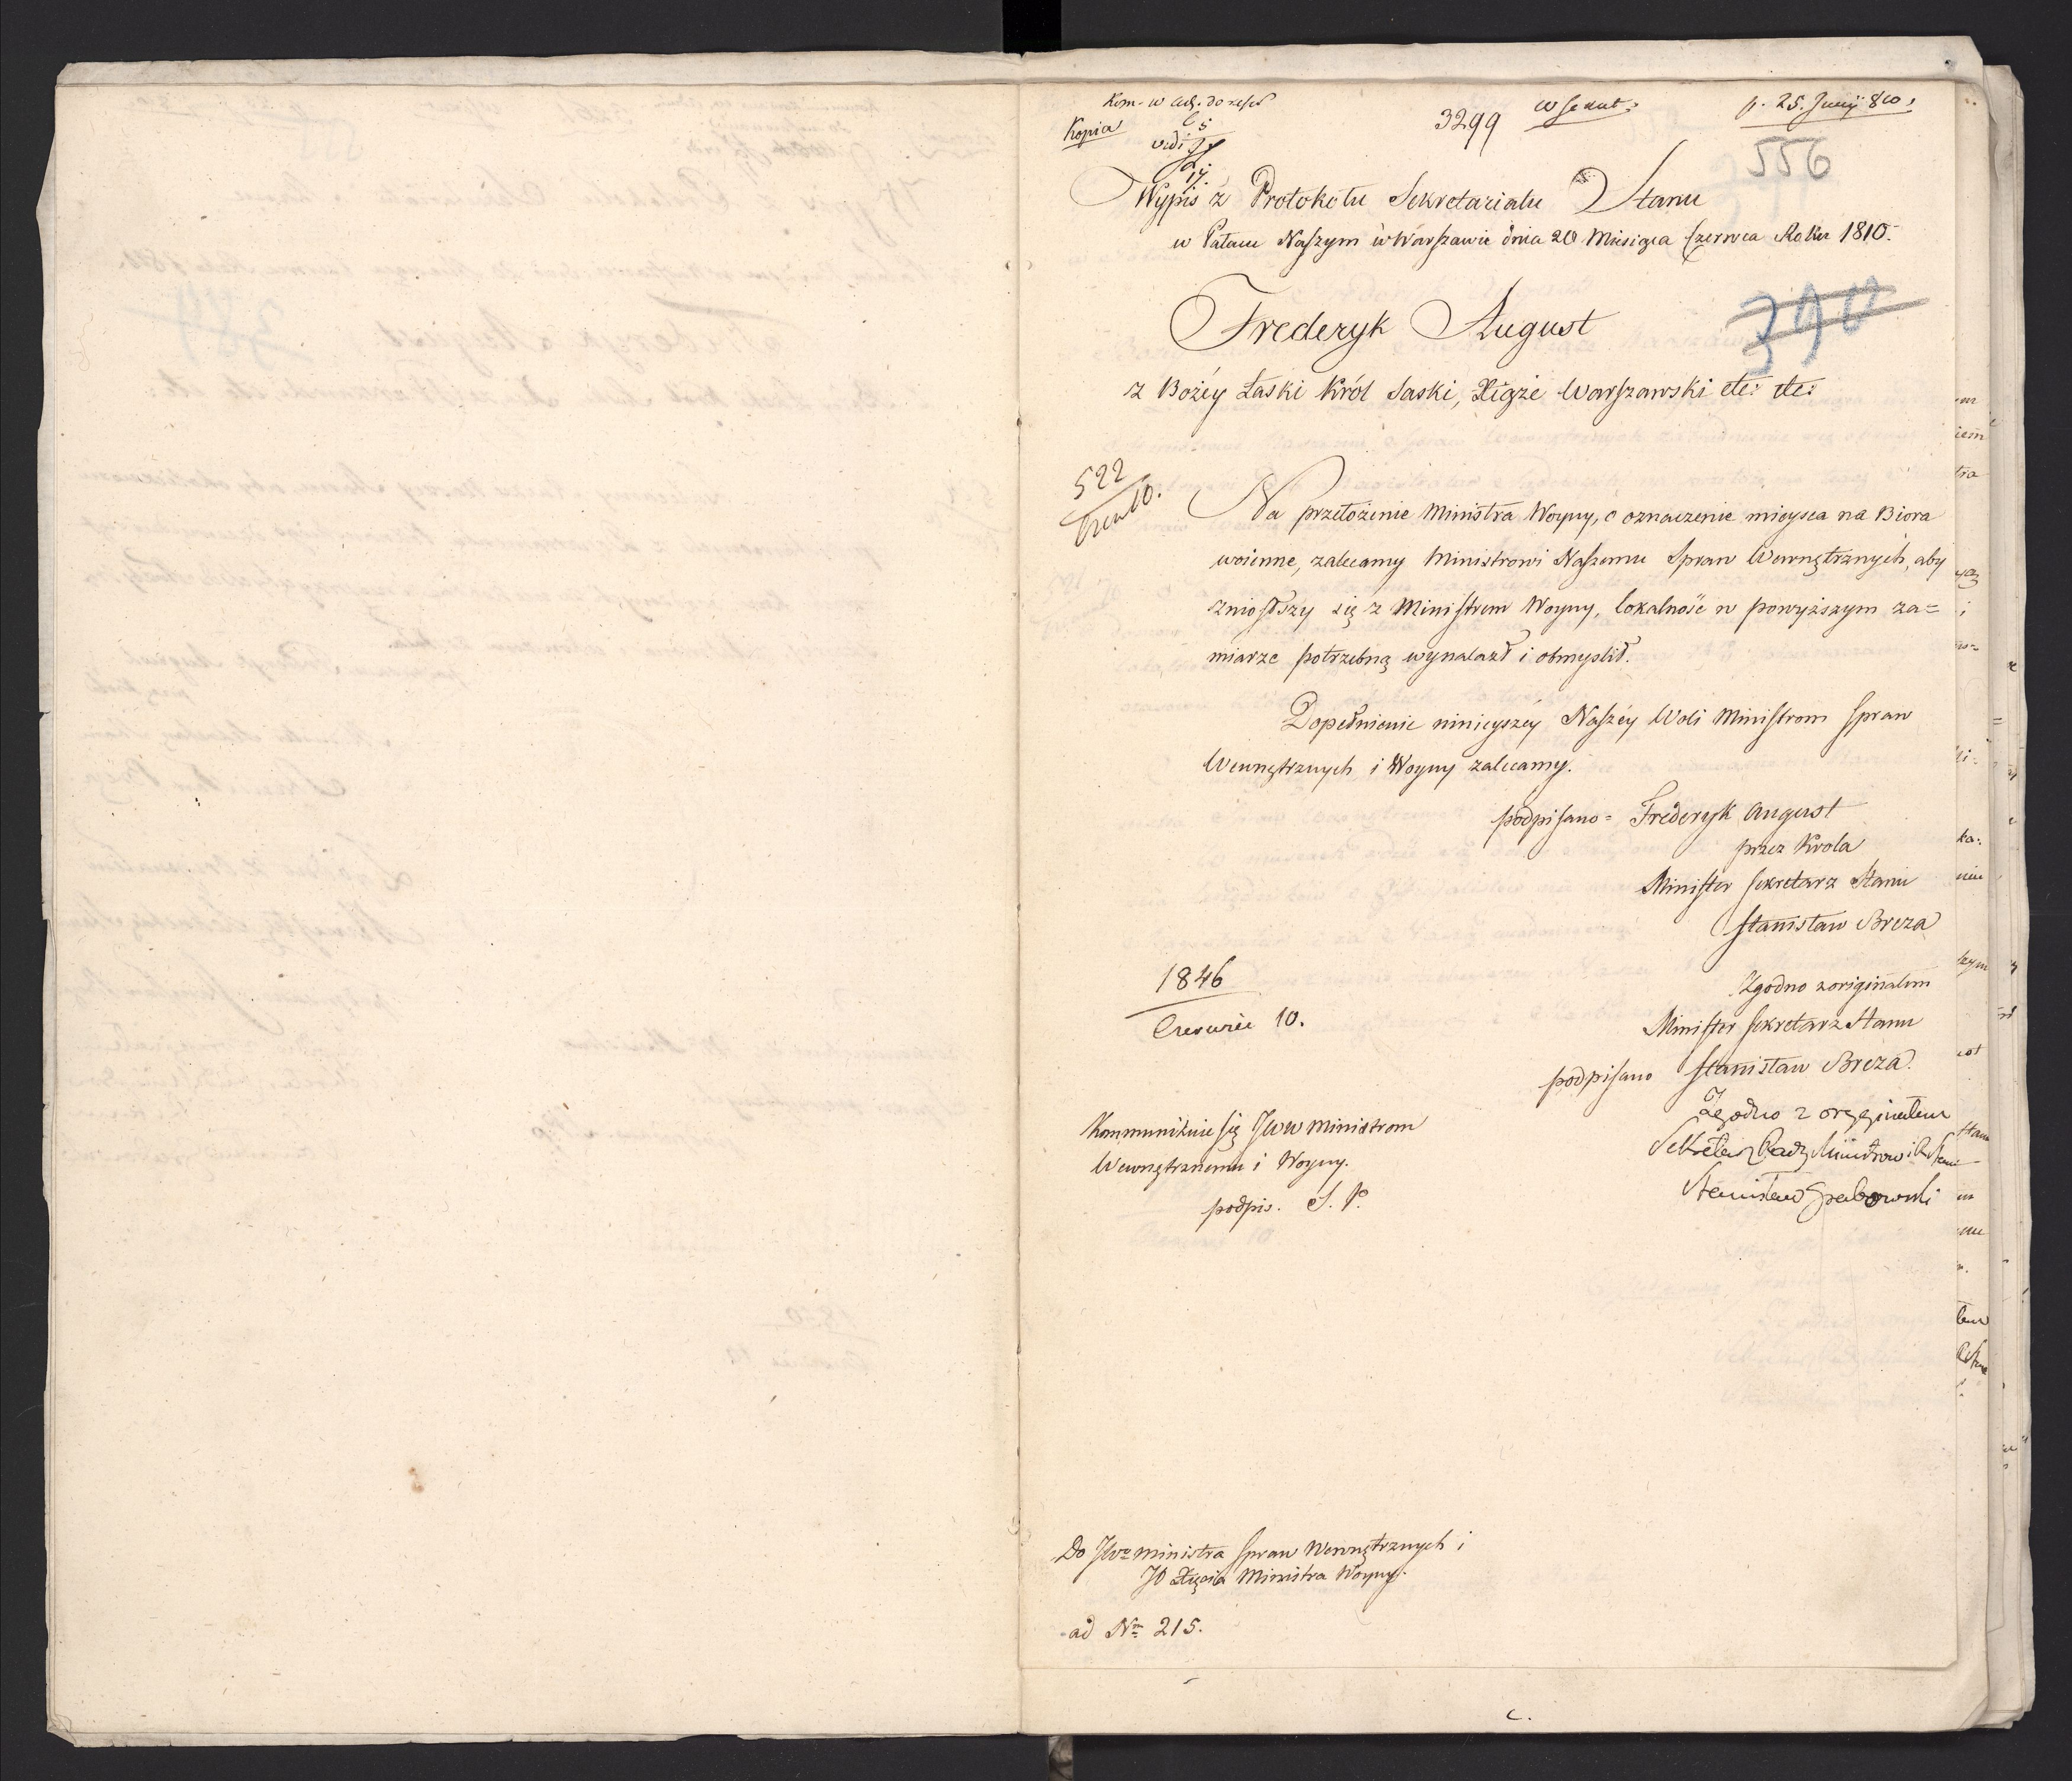 Kopia
3299
p. 25. Junij 810.
vidi
17.
556
Wypis z Protokołu Sekretariatu Stanu
w Pałacu Naszym w Warszawie dnia 20 Miesiąca Czerwca Roku 1810.
Frederyk August
390
z Bożéy Łaski Król Saski, Xiąże Warszawski etc: etc:
522
Czerw 10.
Na przełożenie Ministra Woyny, o oznaczenie mieysca na Biora
woienne, zalecamy Ministrowi Naszemu Spraw Wewnętrznych, aby
zniosłszy się z Ministrem Woyny, lokalność w powyższym za=
miarze potrzebną wynalazł i obmyslił.
Dopełnienie ninieyszéy Naszéy Woli Ministrom Spraw
Wewnętrznych i Woyny zalecamy.
podpisano = Frederyk August
przez Krola
Minister Sekretarz Stanu
Stanisław Breza
1846
Czerwiec 10.
Zgodno z originalem
Minister Sekretarz Stanu
podpisano Stanisław Breza.
Zgodno z oryginałem
Sekretarz Rady Ministrow i R Stanu
Stanisław Grabowski
Kommunikuie się JWW Ministrom
Wewnętrznemu i Woyny.
podpis. S. P.
Do JWo Ministra Spraw Wewnętrznych i
JO Xięcia Ministra Woyny.
ad Nm 215.